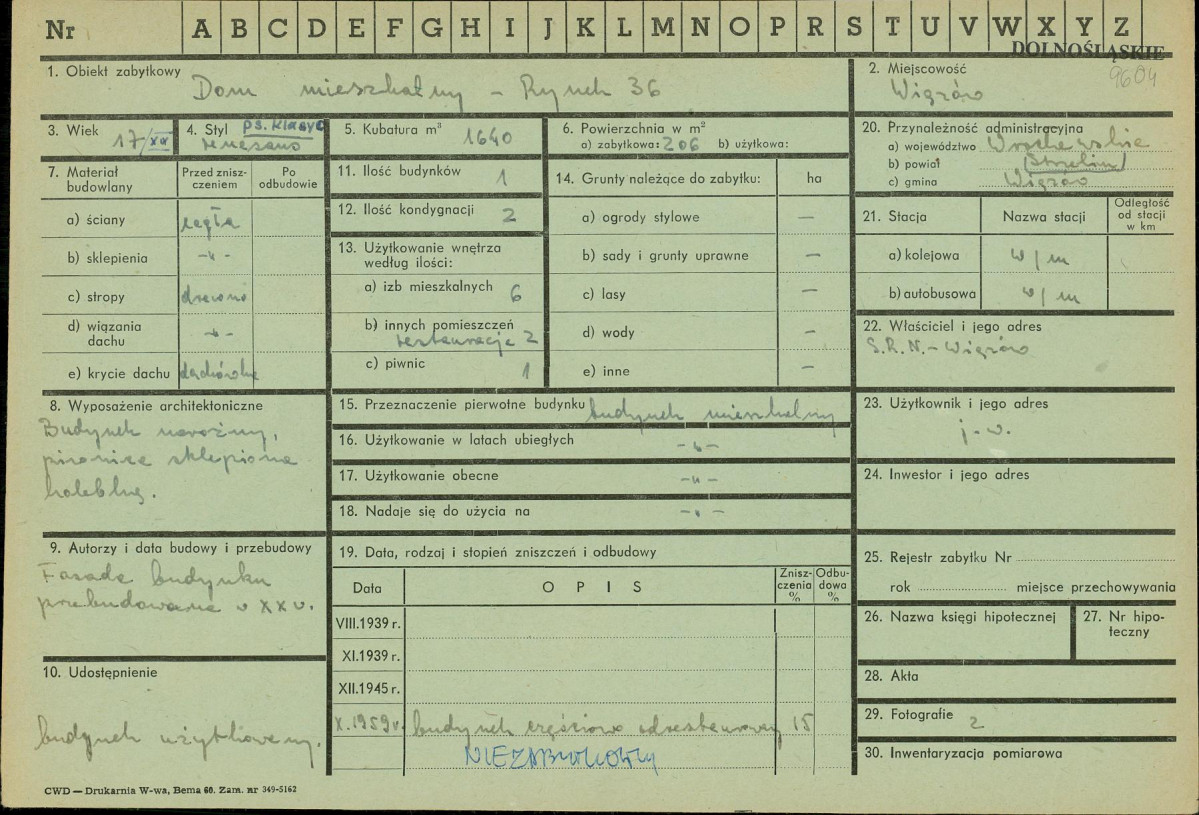 Nr A B C D E F G H I J K L M N O P R S T U V W X Y Z
DOLNOŚLĄSKIE
9604
1. Obiekt zabytkowy
Dom mieszkalny – Rynek 36
2. Miejscowość
Wiązów
3. Wiek
17/XX
4. Styl ps. klasyc
renesans
5. Kubatura m³ 1640
6. Powierzchnia w m²
a) zabytkowa: 206 b) użytkowa:
20. Przynależność administracyjna
a) województwo Wrocławskie
b) powiat (Strzelin)
c) gmina Wiązów
7. Materiał budowlany
Przed zniszczeniem
Po odbudowie
a) ściany cegła
b) sklepienia -„-
c) stropy drewno
d) wiązania dachu -„-
e) krycie dachu dachówka
11. Ilość budynków 1
12. Ilość kondygnacji 2
13. Użytkowanie wnętrza
według ilości:
a) izb mieszkalnych 6
b) innych pomieszczeń
restauracja 2
c) piwnic 1
14. Grunty należące do zabytku: ha
a) ogrody stylowe —
b) sady i grunty uprawne —
c) lasy —
d) wody —
e) inne —
21. Stacja
Nazwa stacji
Odległość
od stacji
w km
a) kolejowa w/m
b) autobusowa w/m
22. Właściciel i jego adres
S.R.N.-Wiązów
8. Wyposażenie architektoniczne
Budynek narożny,
piwnica sklepiona
kolebką.
15. Przeznaczenie pierwotne budynku budynek mieszkalny
16. Użytkowanie w latach ubiegłych -„-
17. Użytkowanie obecne -„-
18. Nadaje się do użycia na -„-
23. Użytkownik i jego adres
j.w.
24. Inwestor i jego adres
9. Autorzy i data budowy i przebudowy
Fasada budynku
przebudowana w XX w.
19. Data, rodzaj i stopień zniszczeń i odbudowy
Data
OPIS
Zniszczenia
%
Odbudowa
%
VIII.1939 r.
XI.1939 r.
XII.1945 r.
X.1959 r. budynek częściowo odrestaurowany 15
NIEZABYTKOWY
25. Rejestr zabytku Nr
rok miejsce przechowywania
26. Nazwa księgi hipotecznej
27. Nr hipo-
teczny
10. Udostępnienie
budynek użytkowany.
28. Akta
29. Fotografie 2
30. Inwentaryzacja pomiarowa
CWD — Drukarnia W-wa, Bema 60. Zam. nr 349-5162